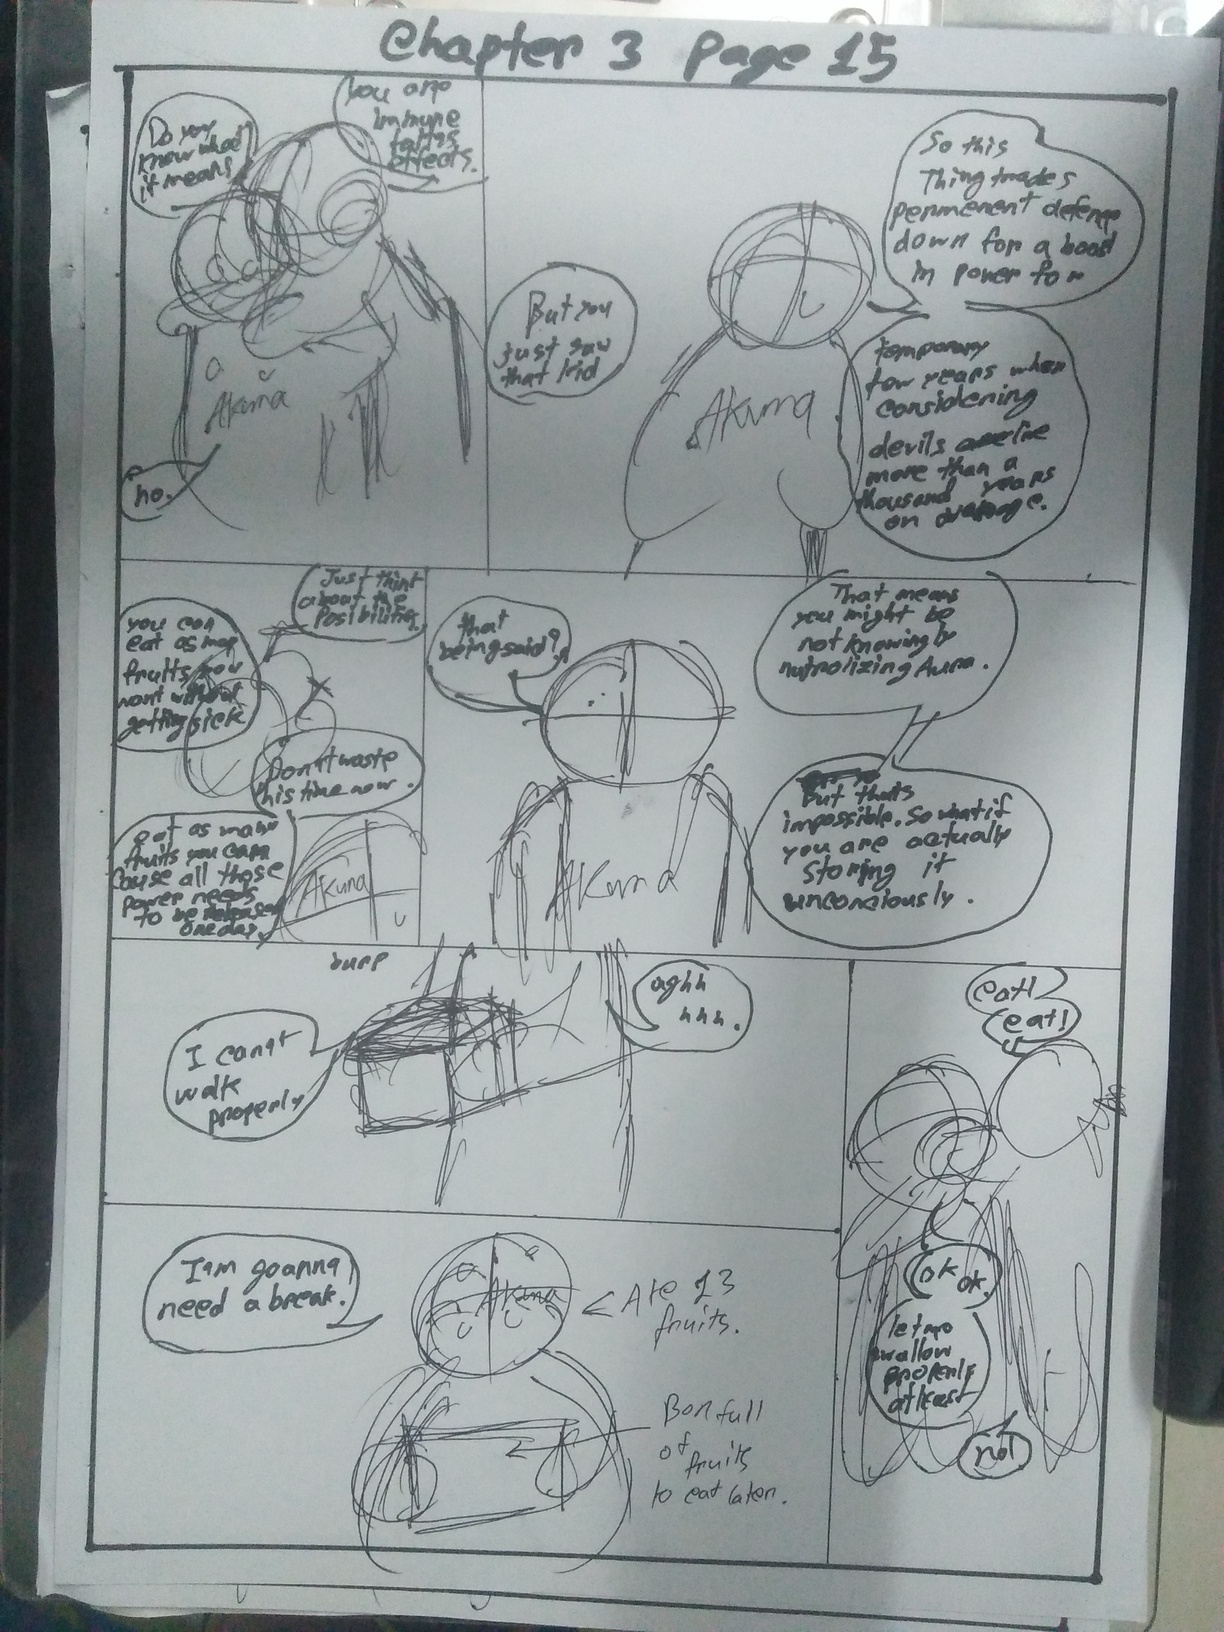 Chapter 3 Page 15
Do you
know what
it means
you are
immune
to this
effects.
Akuma
no.
But you
just saw
that kid
So this
Thing trades
permenent defence
down for a boost
in power for
temporary
few years when
considening
devils
more than a
thousand years
on average.
Akuma
Just think
about the
Posibilities.
you can
eat as many
fruits you
want without
getting sick
Don't waste
this time now.
eat as many
fruits you can
cause all those
power needs
to be released
one day
Akuma
that
being said?
That means
you might be
not knowingly
nutrolizing Aura.
But thats
impossible. So what if
you are actually
storing it
unconciously.
Akuma
burp
I can't
walk
properly
aghh
hhh.
eat!
eat!
ok ok.
let me
swallow
properly
atleast
no!
I am goanna
need a break.
Akuma
< Ate 13
fruits.
Box full
of
fruits
to eat later.